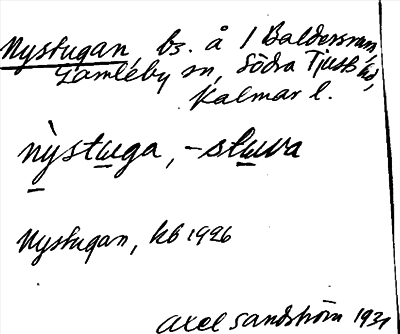 Nystugan, bs. å 1 Baldersrum,
Gamleby sn, Södra Tjust hd,
Kalmar l.
nỳstuga, -stuva
Nystugan, kb 1926
Axel Sandström 1931